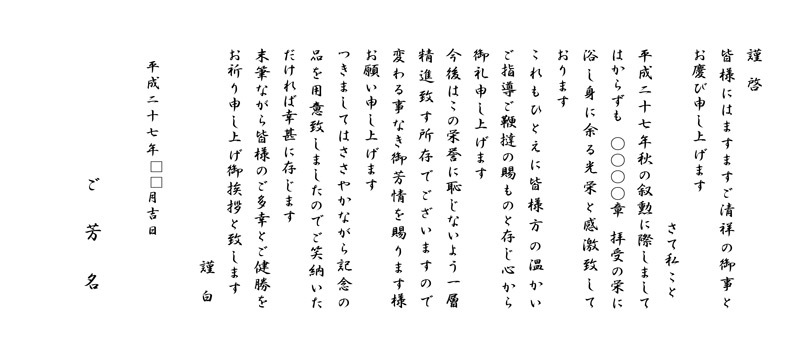 謹啓
皆様にはますますご清祥の御事と
お慶び申し上げます
さて私こと
平成二十七年秋の叙勲に際しまして
はからずも 〇〇〇〇章 拝受の栄に
浴し身に余る光栄と感激致して
おります
これもひとえに皆様方の温かい
ご指導ご鞭撻の賜ものと存じ心から
御礼申し上げます
今後はこの栄誉に恥じないよう一層
精進致す所存でございますので
変わる事なき御芳情を賜ります様
お願い申し上げます
つきましてはささやかながら記念の
品を用意致しましたのでご笑納いた
だければ幸甚に存じます
末筆ながら皆様のご多幸とご健勝を
お祈り申し上げ御挨拶と致します
謹白
平成二十七年□□月吉日
ご芳名